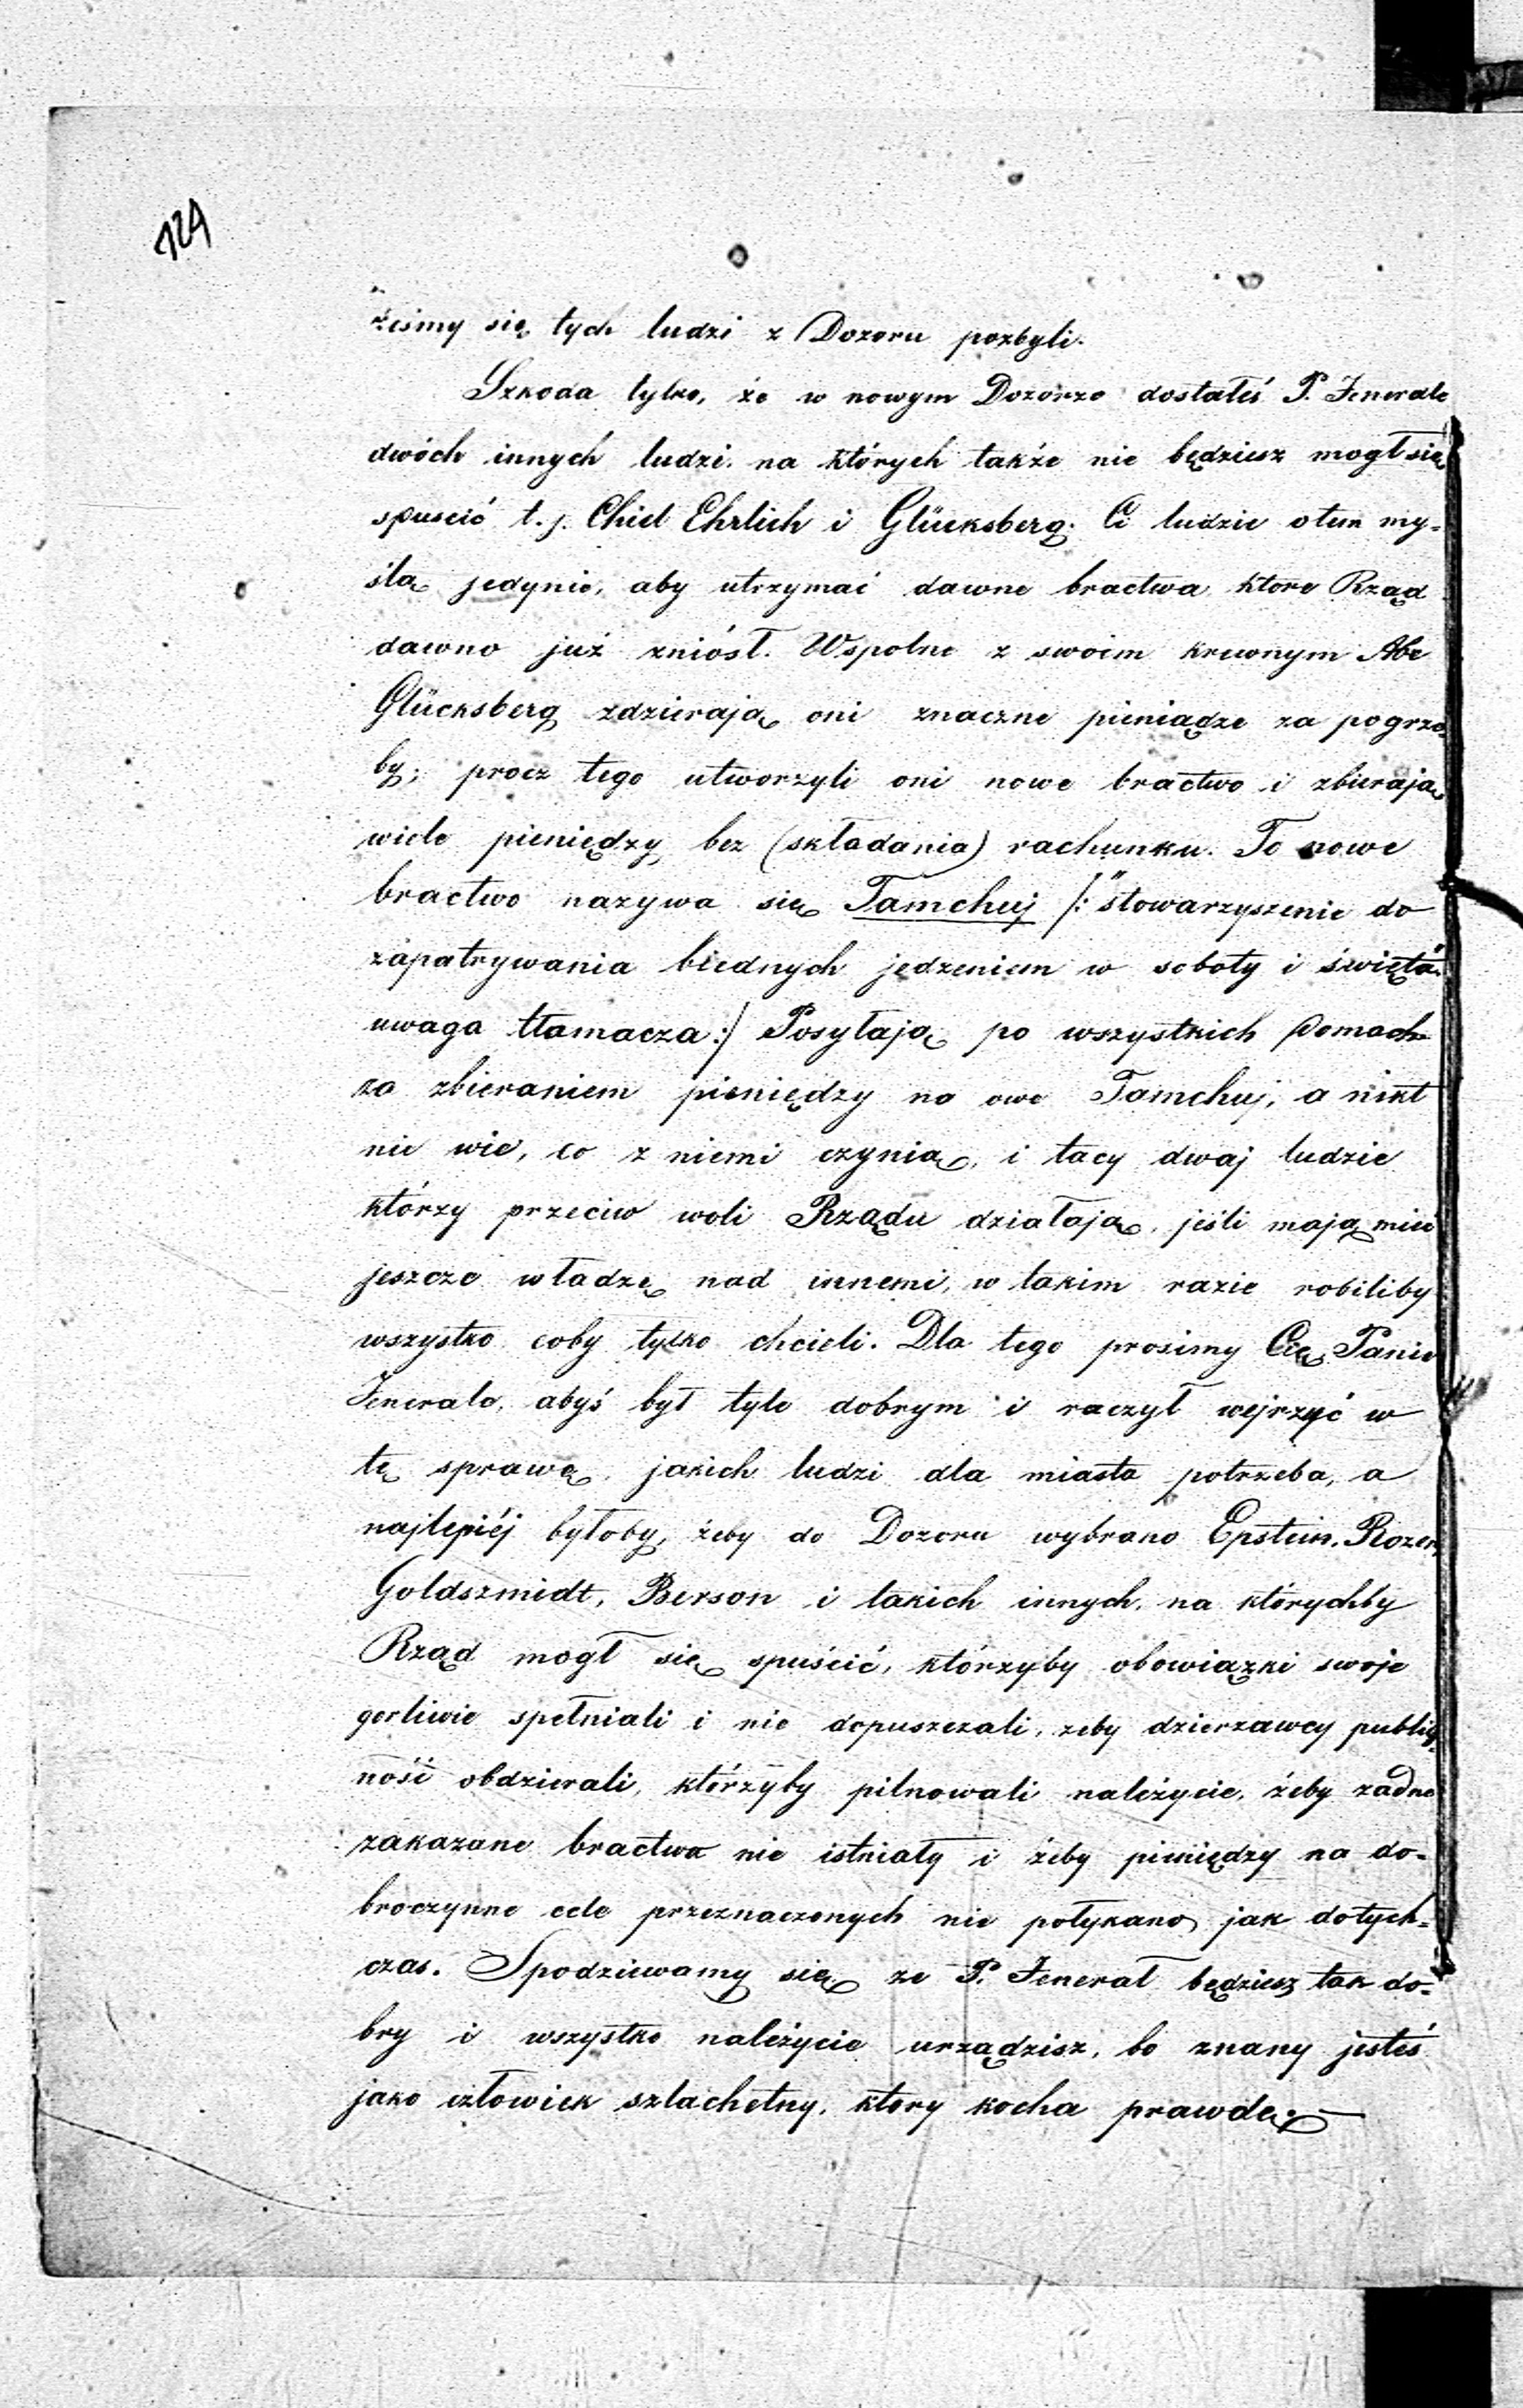 124
żeśmy się tych ludzi z Dozoru pozbyli.
Szkoda tylko, że w nowym Dozorze dostałeś P. Jenerale
dwóch innych ludzi, na których także nie będziesz mogł się
spuscić t. j. Chiel Ehrlich i Glücksberg. Ci ludzie otem my-
ślą jedynie, aby utrzymać dawne bractwa ktore Rząd
dawno już zniósł. Wspolne z swoim krewnym Abe
Glücksberg zdzierają oni znaczne pieniądze za pogrze-
by; procz tego utworzyli oni nowe bractwo i zbierają
wiele pieniędzy bez (składania) rachunku. To nowe
bractwo nazywa się Tamchuj /: "stowarzyszenie do
zapatrywania biednych jedzeniem w soboty i święta"
uwaga tłamacza :/ Posyłają po wszystkich domach
za zbieraniem pieniędzy na owe Tamchuj, a nikt
nie wie, co z niemi czynią, i tacy dwaj ludzie
którzy przeciw woli Rządu działają, jeśli mają mieć
jeszcze władzę nad innemi, w takim razie robiliby
wszystko coby tylko chcieli. Dla tego prosimy Cię Panie
Jenerale, abyś był tyle dobrym i raczył wejrzyć w
tę sprawę, jakich ludzi dla miasta potrzeba, a
najlepiéj byłoby, żeby do Dozoru wybrano Epstein, Rozen,
Goldszmidt, Berson i takich innych, na którychby
Rząd mogł się spuścić, którzyby obowiązki swoje
gorliwie spełniali i nie dopuszczali, zeby dzierzawcy public-
ność obdzierali, którzyby pilnowali należycie, żeby żadne
zakazane bractwa nie istniały i żeby pieniędzy na do-
broczynne cele przeznaczonych nie połykano, jak dotych-
czas. Spodziewamy się ze P. Jenerał będziesz tak do-
bry i wszystko należycie urządzisz, bo znany jesteś
jako człowiek szlachetny, ktory kocha prawdę.